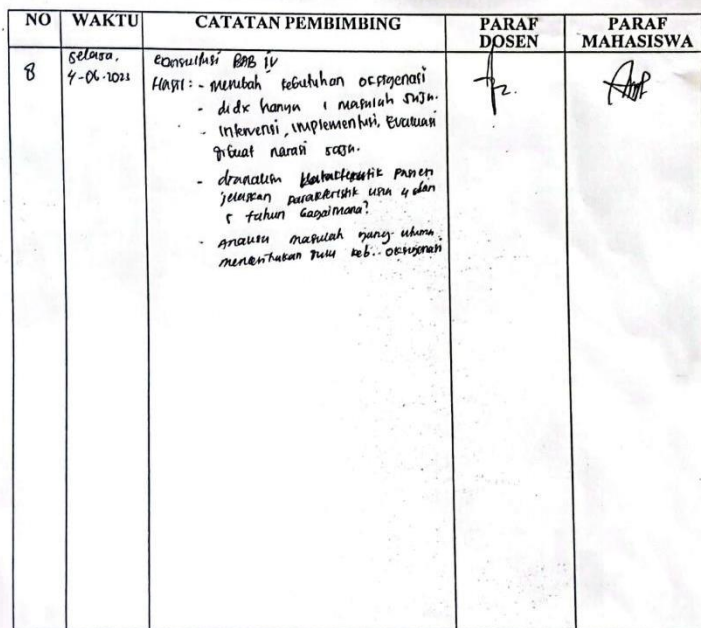 NO WAKTU CATATAN PEMBIMBING PARAF DOSEN PARAF MAHASISWA
8 Selasa, 4-06-2023
Konsultasi BAB IV
Hasil : - merubah kebutuhan oksigenasi
- didx hanya 1 masalah saja.
- Intervensi, implementasi, Evaluasi
dibuat narasi saja.
- karakteristik pasien
jelaskan karakteristik usia 4 dan
5 tahun bagaimana?
- Analisa masalah yang utama
keb. oksigenasi